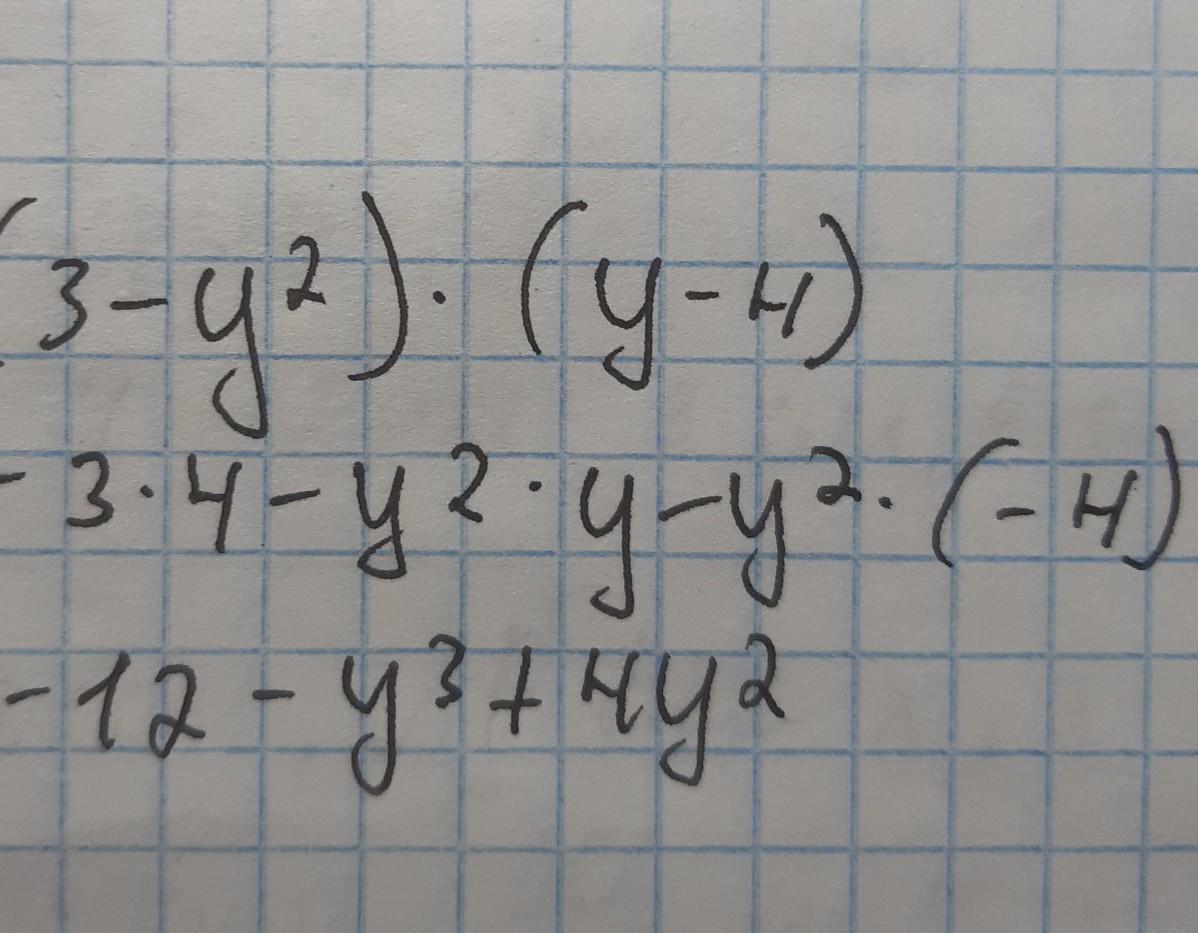 (3-y²)·(y-4)
-3·4-y2·y-y²·(-4)
-12-y³+4y²